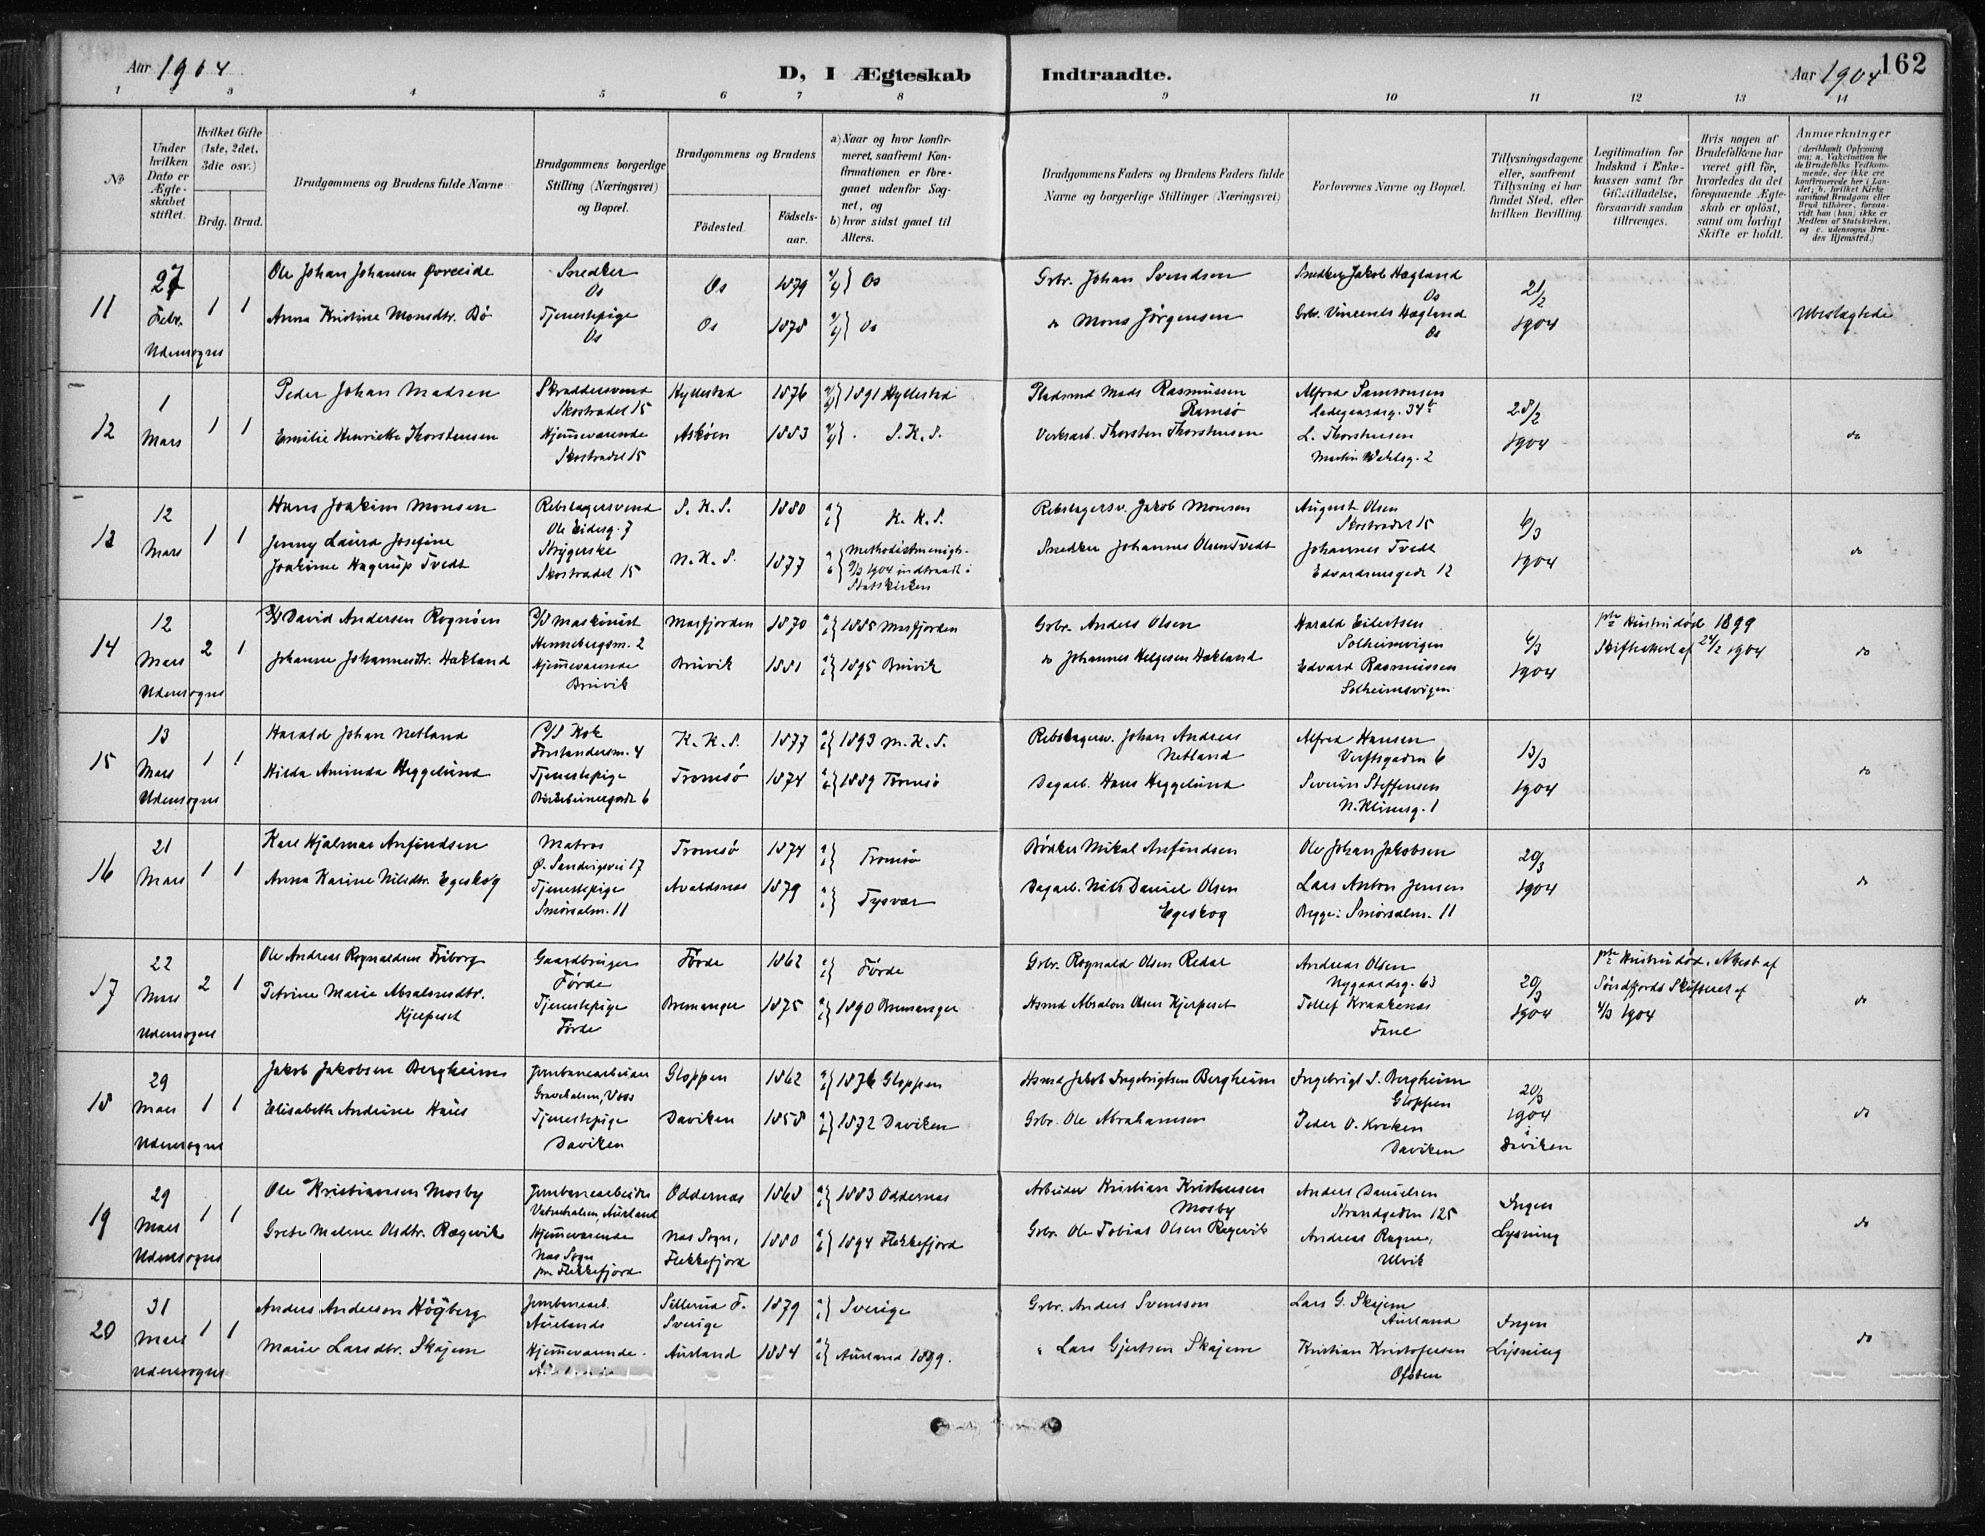 Aar 1904
D, I Ægteskab Indtraadte.
Aar 1904
162
1 2 3 4 5 6 7 8 9 10 11 12 13 14
No
Under hvilken Dato er Ægteskabet stiftet.
Hvilket Gifte (1ste, 2det, 3die osv.)
Brdg. Brud.
Brudgommens og Brudens fulde Navne
Brudgommens borgerlige Stilling (Næringsvei) og Bopæl.
Brudgommens og Brudens
Födested. Födsels-aar.
a) Naar og hvor konfirmeret, saafremt Konfirmationen er foregaaet udenfor Sognet, og
b) hvor sidst gaaet til Alters.
Brudgommens Faders og Brudens Faders fulde Navne og borgerlige Stillinger (Næringsvei)
Forlovernes Navne og Bopæl.
Tillysningsdagene eller, saafremt Tillysning ei har fundet Sted, efter hvilken Bevilling.
Legitimation for Indskud i Enkekassen samt for Giftetilladelse, forsaavidt saadan tiltrænges.
Hvis nogen af Brudefolkene har været gift för, hvorledes da det foregaaende Ægteskab er oplöst, samt om lovligt Skifte er holdt.
Anmærkninger (deriblandt Oplysning om: a. Vakcination for de Brudefolks Vedkommende, der ikke ere konfirmerede her i Landet; b. hvilket Kirkesamfund Brudgom eller Brud tilhörer, forsaavidt han (hun) ikke er Medlem af Statskirken, og c. udensogns Brudes Hjemsted.)
11
27 Febr. Udensogns
1 1
Ole Johan Johansen Øvreeide
Snedker Os
Os 1879 a/b} Os
Grbr. Johan Svendsen
Snedker Jakob Hægland Os
21/2 1904
Anna Kristine Monsdtr. Bö
Tjenestepige Os
Os 1878 a/b} Os
do Mons Jörgensen
Grbr. Vincents Hægland Os
Ubeslægtede
12
1 Mars
1 1
Peder Johan Madsen
Skræddersvend Skostrædet 15
Hyllestad 1876 a/b} 1891 Hyllestad
Pladsmd Mads Rasmussen Ramsö
Alfred Samsonsen Ladegaardsg. 34b
28/2 1904
Emilie Henriette Thorstensen
Hjemmeværende Skostrædet 15
Askøen 1883 a/b} S.K.S.
Verksarb. Thorsten Thorstensen
L. Thorstensen Martin Vahlsg. 2
do
13
12 Mars
1 1
Hans Joakim Monsen
Rebslagersvend Ole Eidesg. 7
S.K.S. 1880 a/b} K.K.S.
Rebslagersv. Jakob Monsen
August Olsen Skostrædet 15
6/3 1904
Jenny Laura Josefine Joakime Hagerup Tvedt
Strygerske Skostrædet 15
N.K.S. 1877 a/b} Methodistmenigh. 9/3 1904 indtraadt i Statskirken
Snedker Johannes Olsen Tvedt
Johannes Tvedt Edvardsensgade 12
do
14
12 Mars Udensogns
2 1
David Andersen Rognöen
P/S Maskinist Hennebergsm. 2
Masfjorden 1870 a/b} 1885 Masfjorden
Grbr. Anders Olsen
Harald Eilertsen Solheimsvigen
6/3 1904
1ste Hustru död 1899 Skifteattest af 24/2 1904
Johanne Johannesdtr. Hakland
Hjemmeværende Bruvik
Bruvik 1881 a/b} 1895 Bruvik
do Johannes Helgesen Hakland
Edvard Rasmussen Solheimsvigen
do
15
13 Mars Udensogns
1 1
Harald Johan Netland
P/S Kok Forstandersm. 4
K.K.S. 1877 a/b} 1893 M.K.S.
Rebslagersv. Johan Andreas Netland
Alfred Hansen Verftsgaden 6
13/3 1904
Hilda Aminda Heggelund
Tjenestepige Birkebeinergade 6
Tromsö 1874 a/b} 1889 Tromsö
Dagarb. Hans Heggelund
Severin Steffensen N. Klinesg. 1
do
16
21 Mars
1 1
Karl Hjalmar Anfindsen
Matros Ø. Sandvigsvei 17
Tromsö 1874 a/b} Tromsö
Bödker Mikal Anfindsen
Ole Johan Jakobsen
20/3 1904
Anna Karine Nilsdtr. Egeskog
Tjenestepige Smörsalm. 11
Avaldsnæs 1879 a/b} Tysvær
Dagarb. Nils Daniel Olsen Egeskog
Lars Anton Jensen Begge: Smörsalm. 11
do
17
22 Mars Udensogns
2 1
Ole Andreas Rognaldsen Friborg
Gaardbruger Förde
Förde 1862 a/b} Förde
Grbr. Rognald Olsen Redal
Andreas Olsen Nygaardsg. 63
20/3 1904
1ste Hustru död. Attest af Söndfjords Skifteret af 4/3 1904
Petrine Marie Absalonsdtr. Kjerpeset
Tjenestepige Förde
Bremanger 1875 a/b} 1890 Bremanger
Hsmd Absalon Olsen Kjerpeset
Tollef Kraakenæs Fane
do
18
29 Mars Udensogns
1 1
Jakob Jakobsen Bergheim
Jernbanearbeider Gravehalsen, Voss
Gloppen 1862 a/b} 1876 Gloppen
Hsmd Jakob Ingebrigtsen Bergheim
Ingebrigt J. Bergheim Gloppen
20/3 1904 i Daviken
Elisabeth Andrine Haus
Tjenestepige Daviken
Daviken 1858 a/b} 1872 Daviken
Grbr. Ole Abrahamsen
Peder O. Kroken Daviken
do
19
29 Mars Udensogns
1 1
Ole Kristiansen Mosby
Jernbanearbeider Vatnehalsen, Aurland
Oddernæs 1868 a/b} 1883 Oddernæs
Arbeider Kristian Kristensen Mosby
Anders Danielsen Strandgaden 125
Ingen Lysning
Grete Malene Olsdtr. Rægevik
Hjemmeværende Næs Sogn pr. Flekkefjord
Næs Sogn, Flekkefjord 1880 a/b} 1894 Flekkefjord
Grbr. Ole Tobias Olsen Rægevik
Andreas Ragne, Ulvik
do
20
31 Mars Udensogns
1 1
Anders Anderson Högberg
Jernbanearb. Aurlands
Sillerud F. Sverige 1879 a/b} Sverige
Grbr. Anders Svensson
Lars G. Skajem Aurland
Ingen Lysning
Marie Larsdtr. Skajem
Hjemmeværende
Aurland 1884 a/b} Aurland 1899.
" Lars Gjertsen Skajem
Kristian Kristofersen Ofsten
do